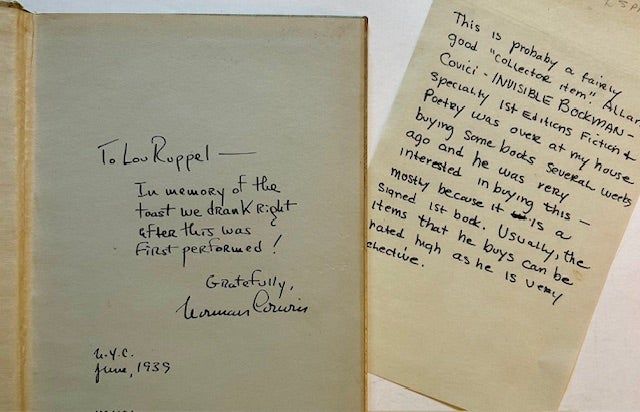 To Lou Ruppel —
In memory of the
toast we drank right
after this was
First performed!
Gratefully,
Norman Corwin
N.Y.C.
June, 1939
This is probaby a fairly
good "collector item". Allan
Covici - INVISIBLE BOOKMAN -
specialty 1st Editions Fiction &
Poetry was over at my house
buying some books several weeks
ago and he was very
interested in buying this —
mostly because it is a
signed 1st book. Usually, the
items that he buys can be
rated high as he is very